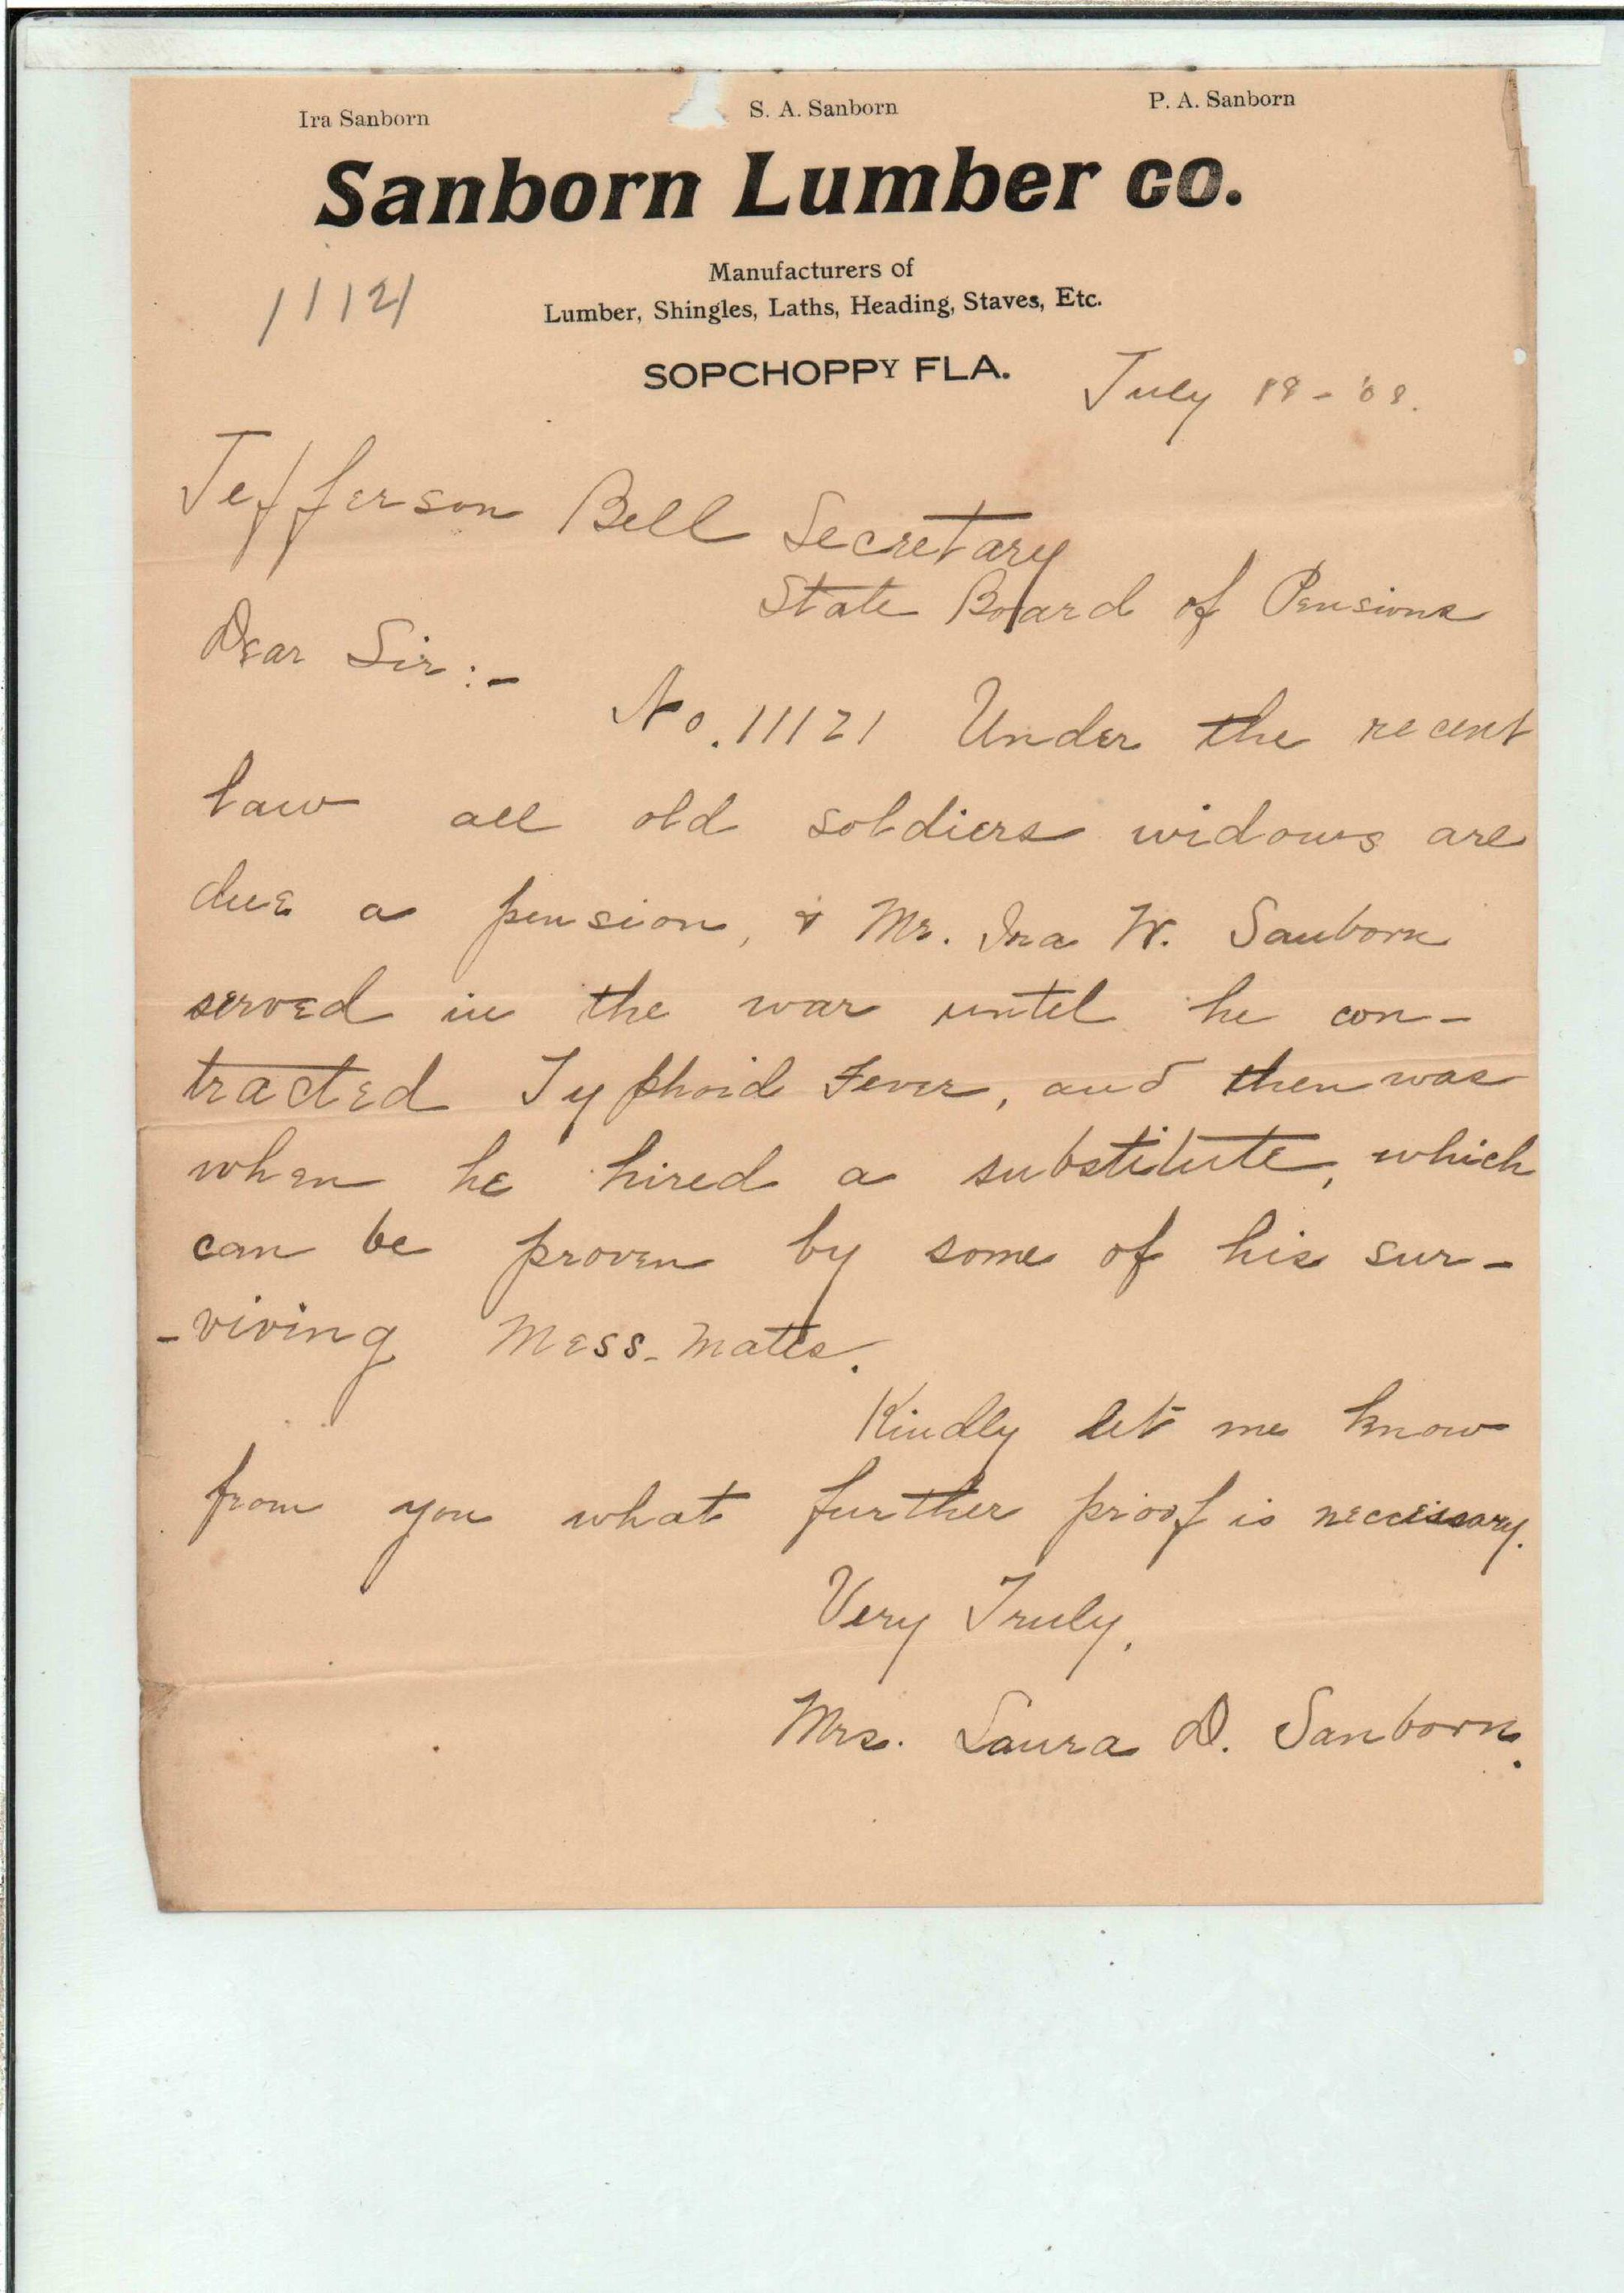 Ira Sanborn S. A. Sanborn P. A. Sanborn
Sanborn Lumber co.
Manufacturers of
11121
Lumber, Shingles, Laths, Heading, Staves, Etc.
SOPCHOPPY FLA.
July 18 - '08.
Jefferson Bell Secretary
State Board of Pensions
Dear Sir:-
No. 11121 Under the recent
law all old soldiers widows are
due a pension, & Mr. Ira W. Sanborn
served in the war until he con-
tracted Typhoid Fever, and then was
when he hired a substitute, which
can be proven by some of his sur-
-viving Mess-mates.
Kindly let me know
from you what further proof is neccessary.
Very Truly,
Mrs. Laura D. Sanborn.